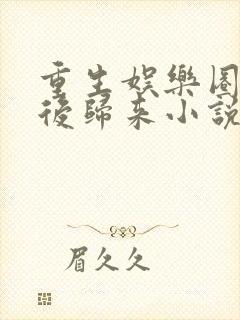 重生娛樂圈
後歸來小說
眉久久